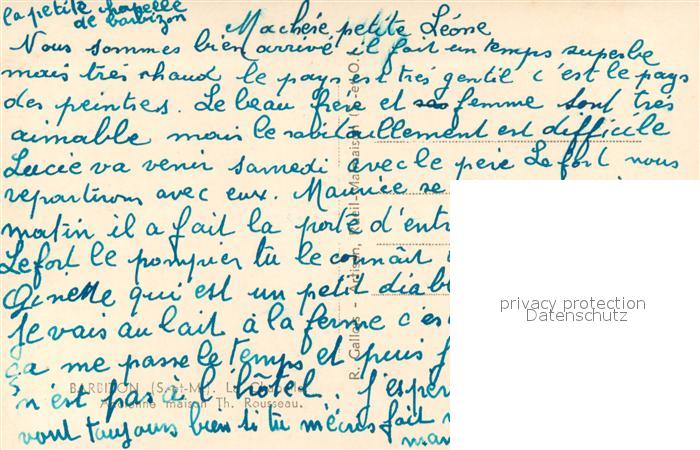 la petite chapelle
de barbizon
Ma chére petite Léone
Nous sommes bien arrivé il fait un temps superbe
mais trés chaud le pays est trés gentil c'est le pays
des peintres. Le beau frére et sa femme sont trés
aimable mais le ravitaillement est difficile
Lucie va venir samedi avec le pére Lefort nous
repartirons avec eux. Maurice se
matin il a fait la porte d'entr
Lefort le pompier tu le connait
Ginette qui est un petit diab
je vais au lait á la ferme c'es
ça me passe le temps et puis
n'est pas á l'hôtel. J'espér
vont toujours bien si tu m'écris fait
BARBIZON (S.-et-M.). La Chapelle
Ancienne maison Th. Rousseau.
R. Gallois - Artisan, Rueil-Malmaison (S.-et-O.)
privacy protection
Datenschutz